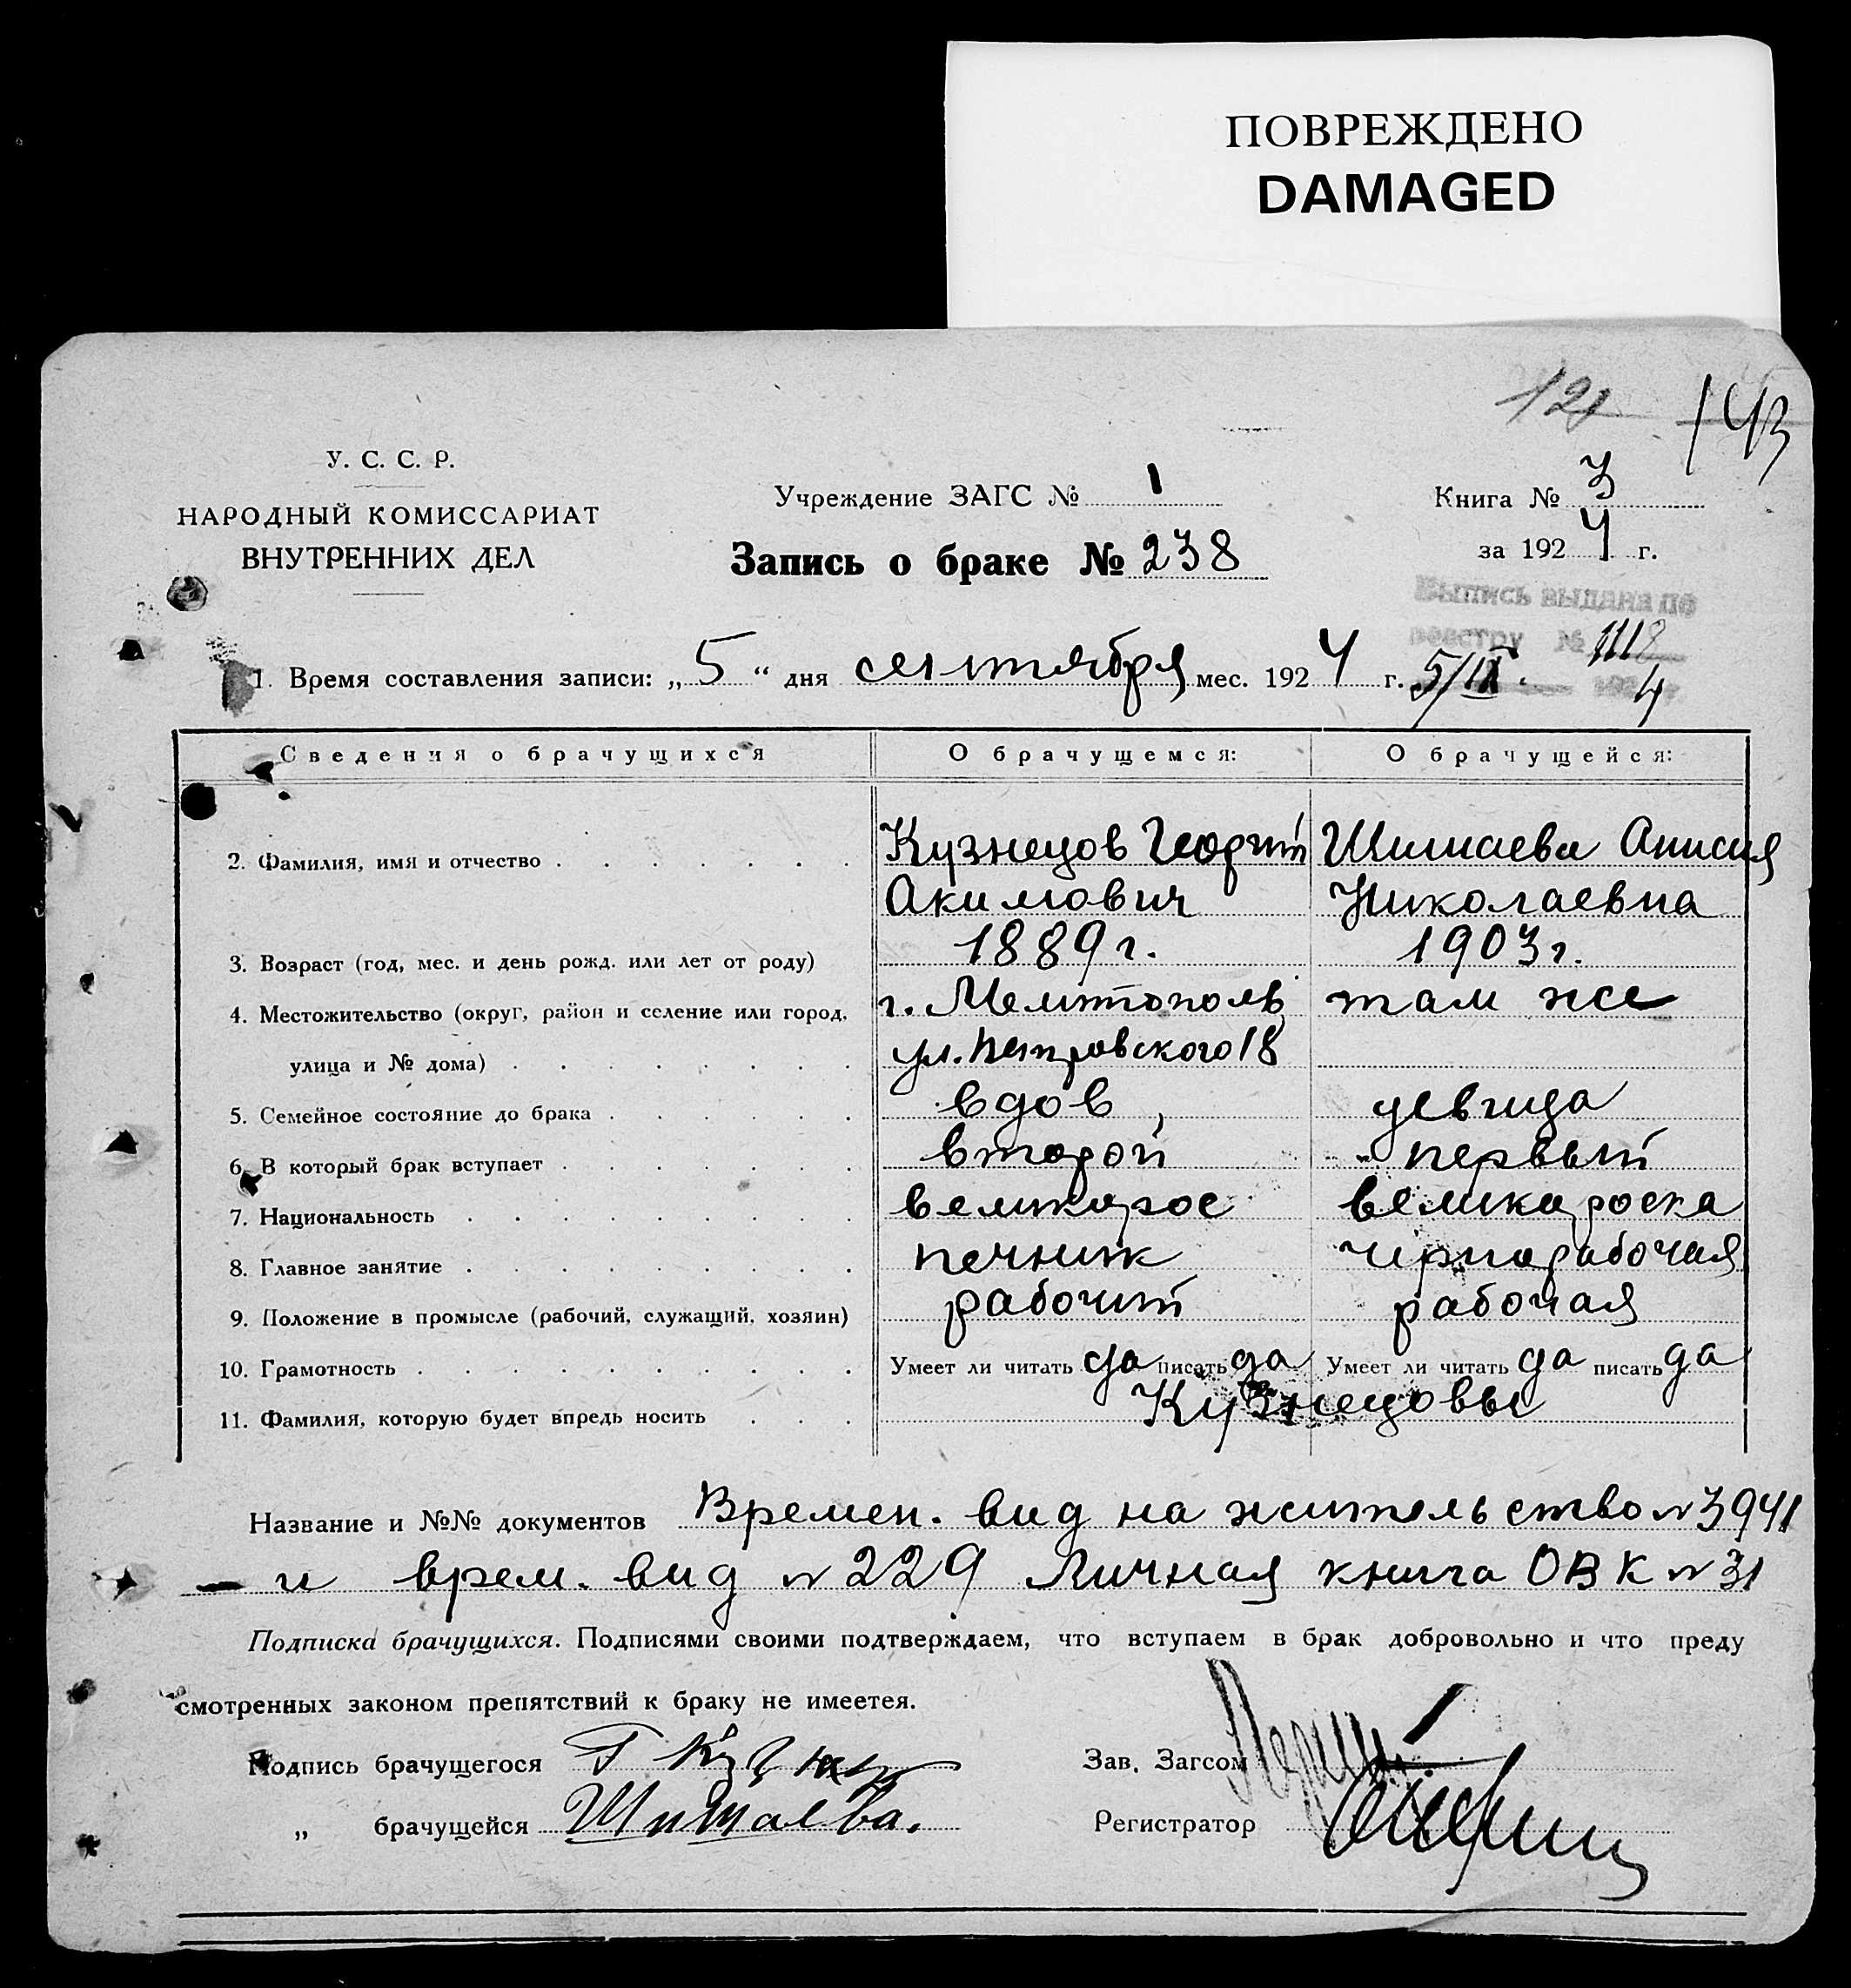 ПОВРЕЖДЕНО
DAMAGED
121 143
У. С. С. Р.
НАРОДНЫЙ КОМИССАРИАТ
ВНУТРЕННИХ ДЕЛ
Учреждение ЗАГС № 1
Запись о браке № 238
Книга № 3
за 1924 г.
Выпись выдана по
реестру № 1112
5/IX. 4
1. Время составления записи: „5“ дня сентября мес. 1924 г.
Сведения о брачущихся О брачущемся: О брачущейся:
2. Фамилия, имя и отчество Кузнецов Георгий Шишаева Анисия
Акимович Николаевна
3. Возраст (год, мес. и день рожд. или лет от роду) 1889 г. 1903 г.
4. Местожительство (округ, район и селение или город, г. Мелитополь там же
улица и № дома) ул. Петровского 18
5. Семейное состояние до брака вдов девица
6. В который брак вступает второй первый
7. Национальность великорос великороска
8. Главное занятие печник чернорабочая
9. Положение в промысле (рабочий, служащий, хозяин) рабочий рабочая
10. Грамотность Умеет ли читать да писать да Умеет ли читать да писать да
11. Фамилия, которую будет впредь носить Кузнецовы
Название и №№ документов Времен. вид на жительство № 3941
и врем. вид № 229 Личная книга ОВК № 31
Подписка брачущихся. Подписями своими подтверждаем, что вступаем в брак добровольно и что преду
смотренных законом препятствий к браку не имеетея.
Подпись брачущегося Г Кузнец
Зав. Загсом
„ брачущейся Шишаева.
Регистратор